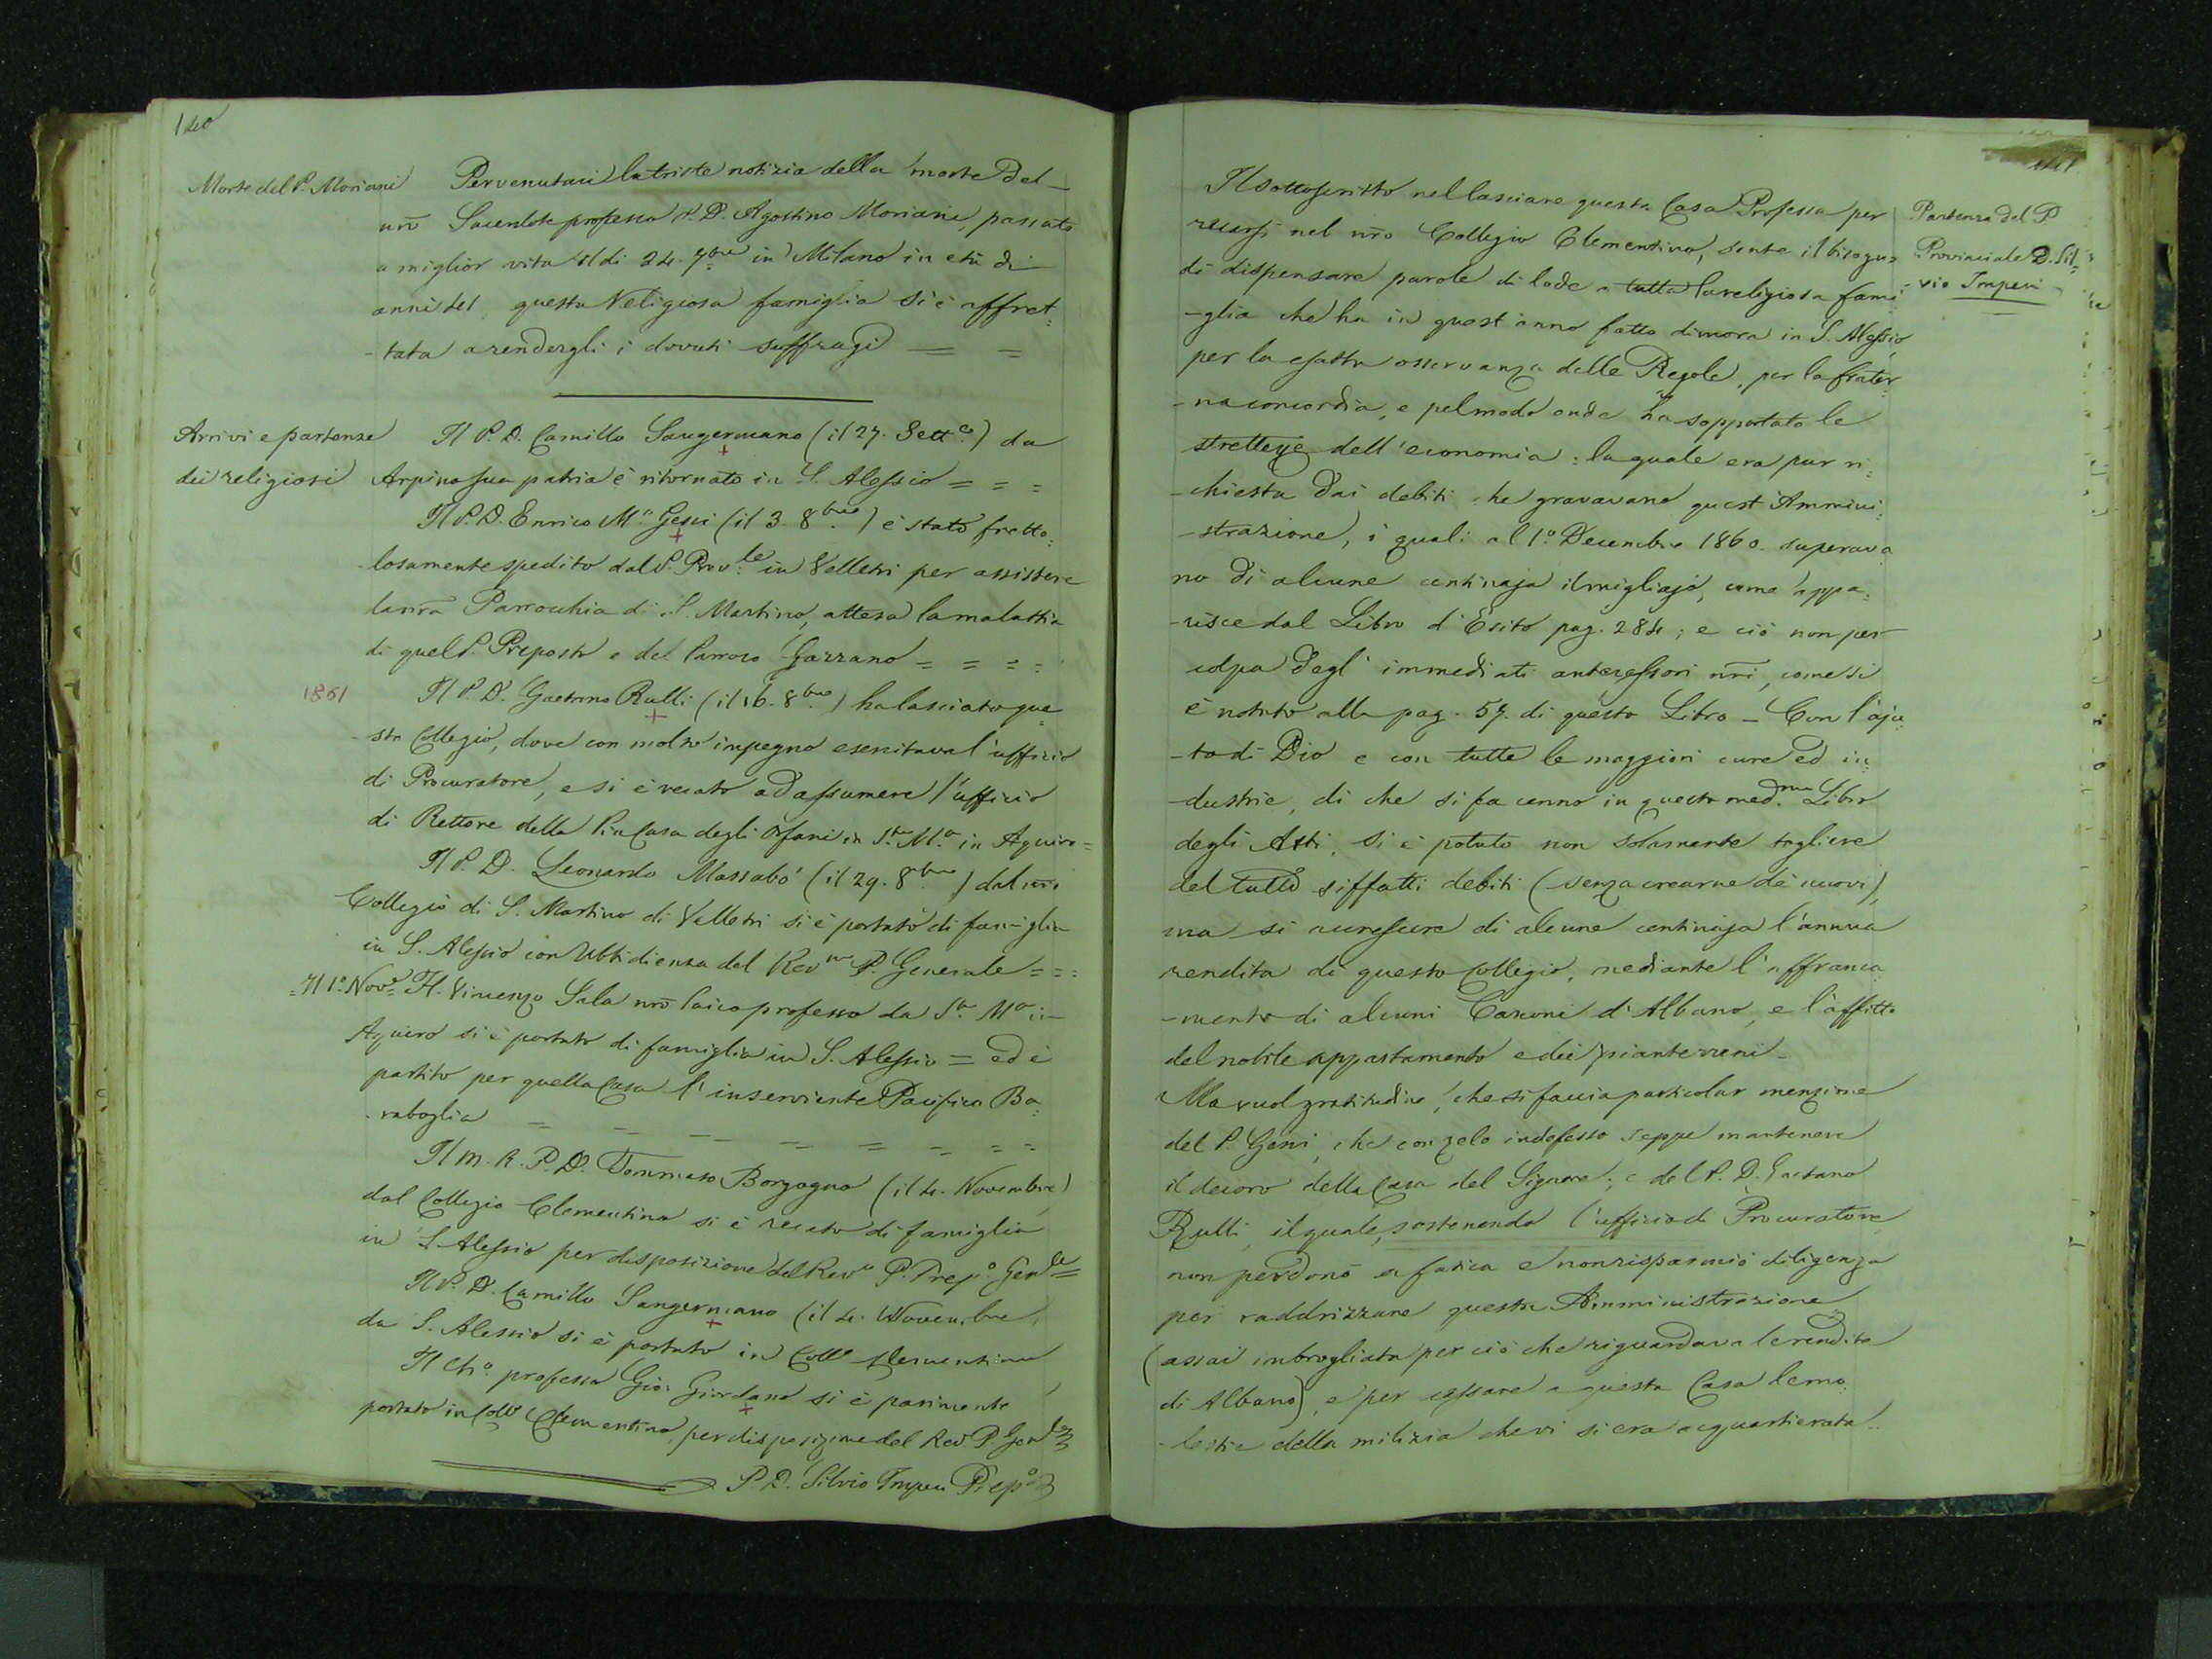 140
Morte del P. Moriani
Pervenutaci la triste notizia della morte del
nro Sacerdote professo P. D. Agostino Moriani, passato
a miglior vita il di 24. 7bre in Milano in età di
anni 41, questa Religiosa famiglia si è affret=
-tata a rendergli i dovuti suffragi = =
Arrivi e partenze
dei religiosi
Il P. D. Camillo Sangermano (il 27. Sette) da
Arpino sua patria è ritornato in S. Alessio = = =
Il P. D. Enrico Ma Gessi (il 3. 8bre) è stato fretto=
-losamente spedito dal P. Provle in Velletri per assistere
la nra Parrocchia di S. Martino, attesa la malattia
di quel P. Preposto e del Parroco Gazzano = = = =
1861
Il P. D. Gaetano Rulli (il 16. 8bre) ha lasciato que=
-sto Collegio, dove con molto impegno esercitava l'ufficio
di Procuratore, e si è recato ad assumere l'ufficio
di Rettore della Pia Casa degli Orfani in Sta Ma in Aquiro=
Il P. D. Leonardo Massabò (il 29. 8bre) dal nro
Collegio di S. Martino di Velletri si è portato di famiglia
in S. Alessio con Ubbidienza del Revmo P. Generale = = =
=Il 1o Nove= Fr. Vincenzo Sala nro laico professo da Sta Ma in
Aquiro si è portato di famiglia in S. Alessio = ed è
partito per quella Casa l'inserviente Pacifico Ba=
-raboglia = = = = = = = =
Il M. R. P. D. Tommaso Borgogno (il 4. Novembre)
dal Collegio Clementino si è recato di famiglia
in S. Alessio per disposizione del Revo P. Prepo Genle=
Il P. D. Camillo Sangermano (il 4. Novembre,
da S. Alessio si è portato in Collo Clementino
Il Cho professo Gio: Giordano si è parimente
portato in Collo Clementino, per disposizione del Rev. P. Genle
P. D. Silvio Imperi Prepo
141
Partenza del P.
Provinciale D. Sil=
-vio Imperi
Il sottoscritto nel lasciare questa Casa Professa per
recarsi nel nro Collegio Clementino, sente il bisogno
di dispensare parole di lode a tutta la religiosa fami=
-glia che ha in quest'anno fatto dimora in S. Alessio,
per la esatta osservanza delle Regole, per la frater=
-na concordia, e pel modo onde ha sopportato le
strettezze dell'economia: la quale era pur ri=
-chiesta dai debiti che gravavano quest'Ammini=
-strazione, i quali al 1o Decembre 1860. superava=
no di alcune centinaja il migliajo, come appa=
-risce dal Libro d'Esito pag. 284; e ciò non per
colpa degl'immediati antecessori nri, come si
è notato alla pag. 57. di questo Libro - Con l'aju=
-to di Dio e con tutte le maggiori cure ed in=
-dustrie, di che si fa cenno in questo medmo Libro
degli Atti, si è potuto non solamente togliere
del tutto siffatti debiti (senza crearne de' nuovi),
ma si accrescere di alcune centinaja l'annua
rendita di questo Collegio, mediante l'affranca=
-mento di alcuni Canoni d'Albano, e l'affitto
del nobile appartamento e dei pianterreni -
Ma vuol gratitudine, che si faccia particolar menzione
del P. Gessi, che con zelo indefesso seppe mantenere
il decoro della Casa del Signore; e del P. D. Gaetano
Rulli, il quale, sostenendo l'ufficio di Procuratore
non perdonò a fatica e non risparmiò diligenza
per raddrizzare questa Amministrazione
(assai imbrogliata per ciò che riguardava le rendite
di Albano), e per cessare a questa Casa le mo=
-lestie della milizia che vi si era acquartierata.